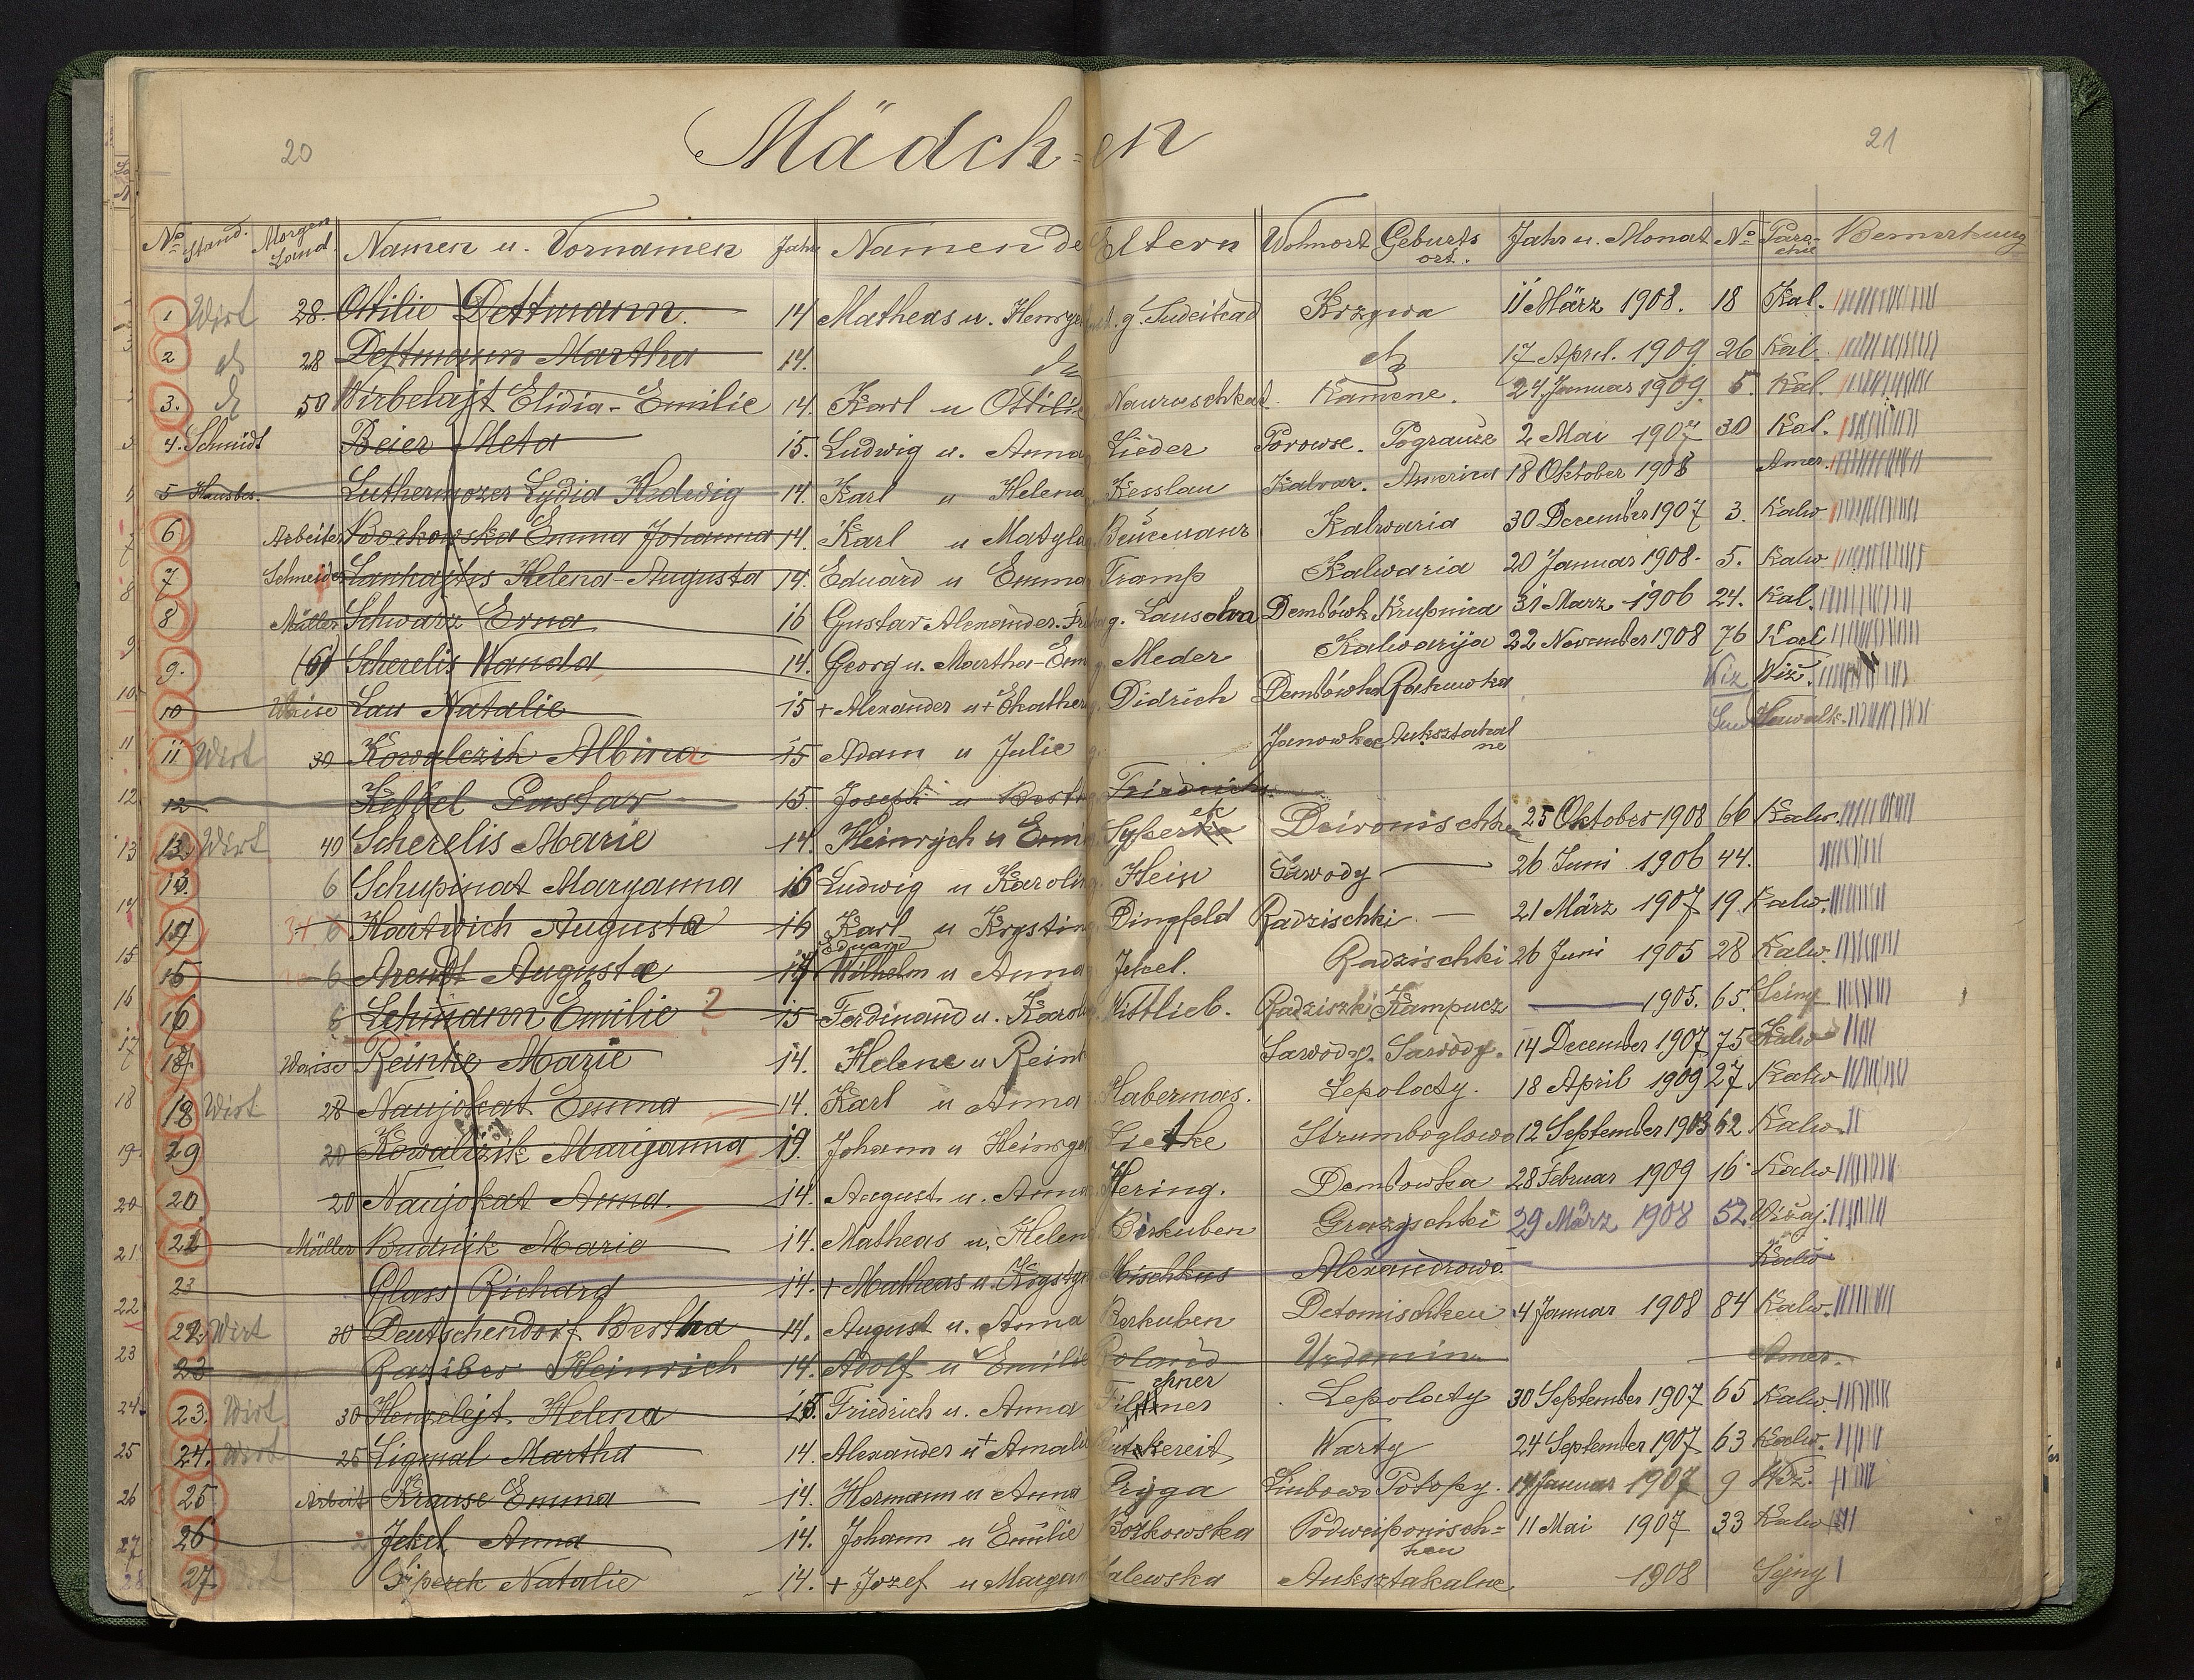 20
Mädch=en
21
No Stand. Morgen Land. Namen u. Vornamen Jahr Namen de Eltern Wohnort Geburts ort. Jahr u. Monat No Para- chie Bemerkung
1 Wirt 28. Ottilie Dettmann. 14 Matheas u. g. Tudeikad Krzywa 11 März 1908. 18 Kal.
2 28 Dettmann Martha 14. 17 April. 1909 26 Kal.
3. 50 Wirbelajt Elidia-Emilie 14. Karl u Ottilie Nauruschkat. Kamene. 24 Januar 1909. 5. Kal.
4. Schmidt Beier Meta 15. Ludwig u. Anna Lieder Porowse. Pograuze 2 Mai 1907 30 Kal.
5 Hausbes. Luthermozer Lydia Hedwig 14. Karl u Helena Kesslau Kalvar. America 18 Oktober 1908 Amer.
6 Arbeiter Borkowska Emma Johanna 14. Karl u Matylda Kalwaria 30 December 1907 3. Kalw
7 Schneider Lankajtis Helena-Augusta 14. Eduard u Emma Tramp Kalwaria 20 Januar 1908. 5. Kalw
8 Müller Schwarz Erna 16 Gustav Alexander. g. Dembówk. Krupnica 31 März 1906 24. Kal.
9. (6) Scherelis Wanda 14. Georg u. Martha-Em g. Meder Kalwarija 22 November 1908 76 Karl
10 Waise Lau Natalie 15 + Alexander u + Ekather Didrich Dembówka Rakuwka Wiz Wiż.
11 Wirt 30 Kowalczik Albina. 15 Adam u Julie g. Janowka Auksztakal ne Suwalk.
12 Keppel Gustav 15. Joseph u Berta Friedrich.
13. Wirt 40 Scherelis Marie 14. Heinrych u Emi Syperek Deironischke 25 Oktober 1908 66 Kalw.
13. 6 Schupinat Maryanna 16 Ludwig u Karolin Hein Sawody 26 Juni 1906 44.
14 31 6 Hartwich Augusta 16 Karl u Krystin Dingfeld Radzischki — 21 März 1907 19. Kalw.
15 6 Arendt Augusta 17 Eduard Wilhelm u Anna Jekel. Radzischki 26 Juni 1905 28 Kalw.
16 6 Lehmann Emilie ? 15 Ferdinand u. Karol Wittlieb. Radziszki Kampucz — 1905. 65. Seiny
17. Waise Reinke Marie 14. Helene u Reink Sawody. Sawody. 14 December 1907 75 Kalw
18 Wirt 28 Naujokat Emma 14. Karl u Anna Habermas. Lepolaty. 18 April 1909 27 Kalw
19 20 Kowalczik Marijanna 19. Johann u Heinryet Lietke Strumboglowo 12 September 1903 62 Kalw.
20 20 Naujokat Anna. 14. August. u. Anna Hering. Dembowka 28 Februar 1909 16. Kalw
21 Müller Budnik Marie 14. Matheas u. Helen Birkuben Grazyschki 29 März 1908 52. Wiżaj.
23 Glass Richard 14. + Matheas u. Krysty Mischkus Alexandrowo. Kalw
22. Wirt 30 Deutschendorf Bertha 14. August u. Anna Berkuben Detomischken 4 Januar 1908 84 Kalw.
23 Raziber Heinrich 14. Adolf u Emilie Roland Urdomin. Amer.
23. Wirt 30 Henzelejt Helena 15. Friedrich u. Anna Lepolaty 30 September 1907 65 Kalw.
24. Wirt 25 Ligmal Martha 14. Alexander u + Amalie Warty 24 September 1907 63 Kalw.
25 Arbeit Krause Emma 14. Hermann u Anna Pryga Liubowo Potopy. 14 Januar 1907 9 Wiz.
26 Jekel Anna 14. Johann u Emilie Borkowska Podweiponisch= ken 11 Mai 1907 33 Kalw
27. Giperek Natalie 14. + Jozef u Margar Zalewska Auksztakalne. 1908 Sejny